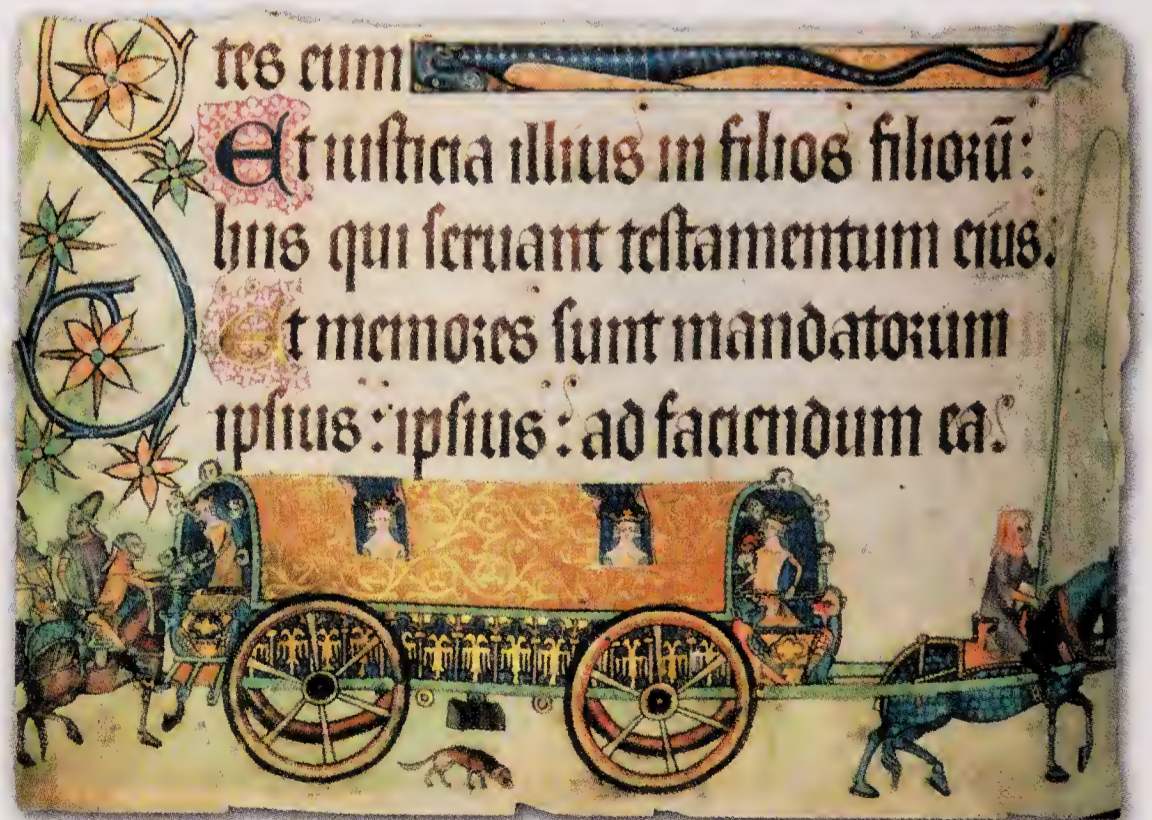 tes eum
Et iusticia illius in filios filiorū:
hiis qui seruant testamentum eius.
Et memores sunt mandatorum
ipsius: ipsius: ad faciendum ea.